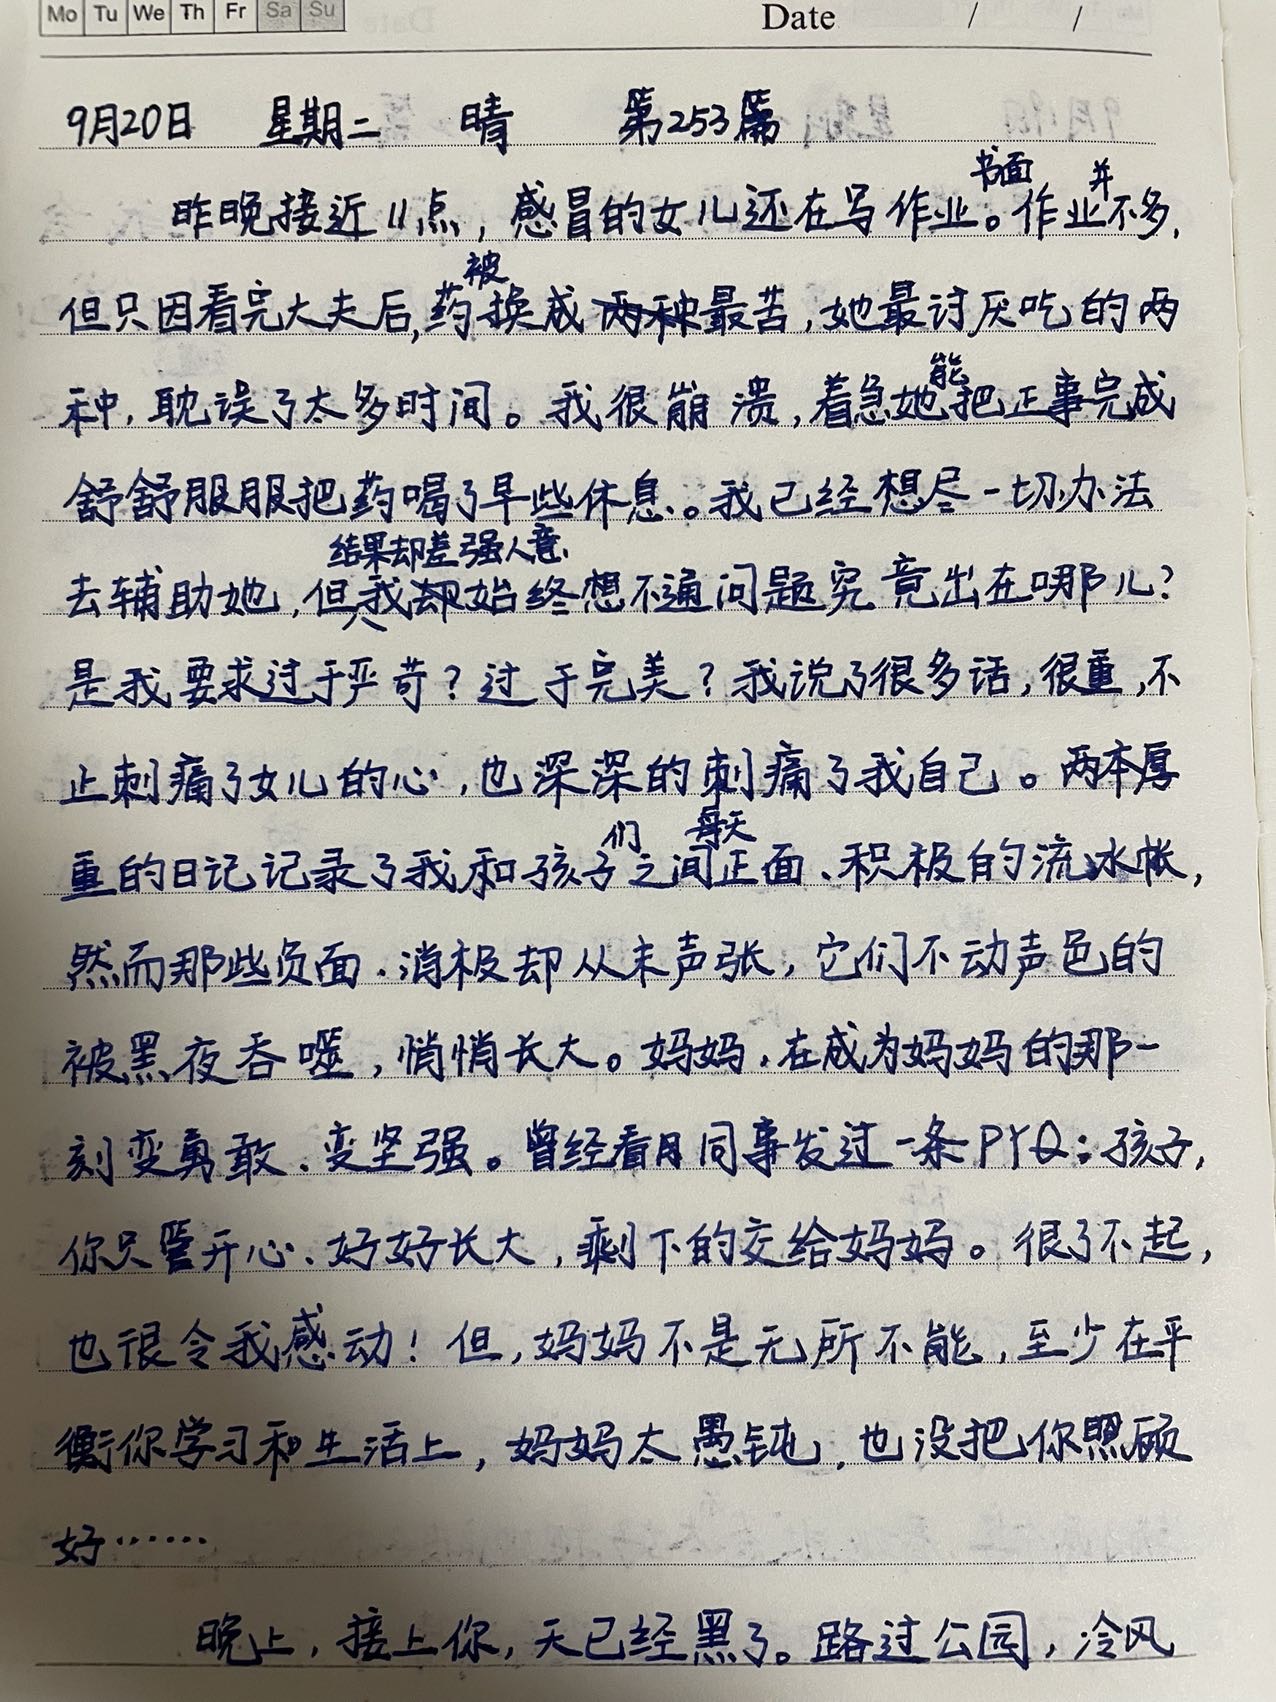 Mo Tu We Th Fr Sa Su Date / /
9月20日 星期二 晴 第253篇
昨晚接近11点，感冒的女儿还在写作业。书面作业并不多，
但只因看完大夫后，药被换成两种最苦，她最讨厌吃的两
种，耽误了太多时间。我很崩溃，着急她能把正事完成
舒舒服服把药喝了早些休息。我已经想尽一切办法
去辅助她，但结果却差强人意，我却始终想不通问题究竟出在哪儿？
是我要求过于严苛？过于完美？我说了很多话，很重，不
止刺痛了女儿的心，也深深的刺痛了我自己。两本厚
重的日记记录了我和孩子们之间每天正面、积极的流水帐，
然而那些负面、消极却从未声张，它们不动声色的
被黑夜吞噬，悄悄长大。妈妈，在成为妈妈的那一
刻变勇敢、变坚强。曾经看月同事发过一条PYQ：孩子，
你只管开心、好好长大，剩下的交给妈妈。很了不起，
也很令我感动！但，妈妈不是无所不能，至少在平
衡你学习和生活上，妈妈太愚钝，也没把你照顾
好……
晚上，接上你，天已经黑了。路过公园，冷风